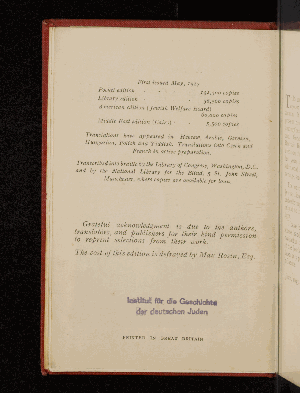 First issued May, 1917
Pocket edition - - - 154,000 copies
Library edition - - 36,500 copies
American edition (Jewish Welfare Board)
60,000 copies
Middle East edition (Cairo) - 5,500 copies
Translations have appeared in Hebrew, Arabic, German,
Hungarian, Polish and Yiddish. Translations into Czech and
French are in preparation.
Transcribed into braille by the Library of Congress, Washington, D.C.,
and by the National Library for the Blind, 5 St. John Street,
Manchester, where copies are available for loan.
Grateful acknowledgment is due to the authors,
translators, and publishers for their kind permission
to reprint selections from their work.
The cost of this edition is defrayed by Max Bonn, Esq.
Institut für die Geschichte
der deutschen Juden
PRINTED IN GREAT BRITAIN